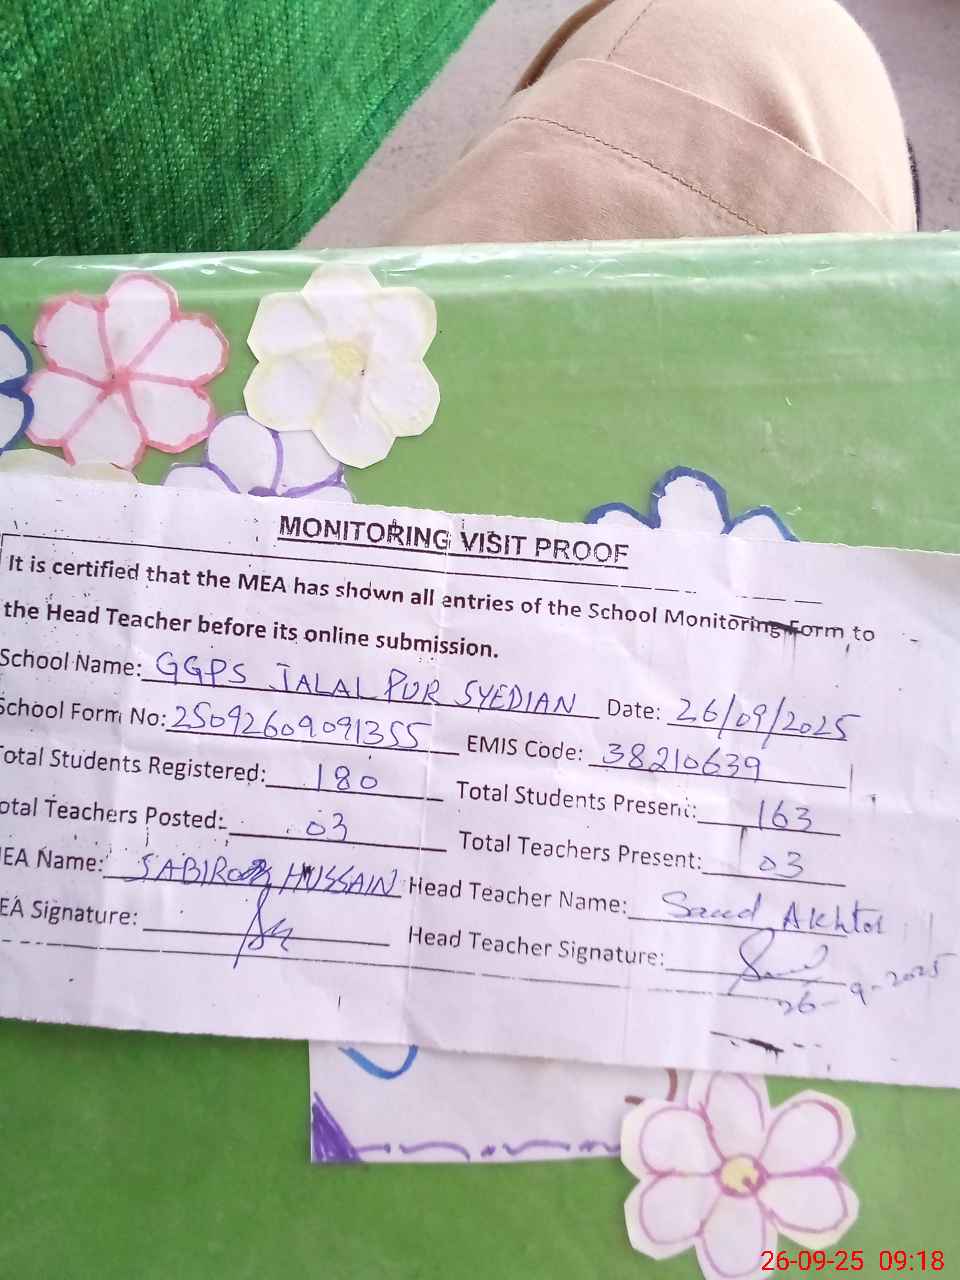 MONITORING VISIT PROOF
It is certified that the MEA has shown all entries of the School Monitoring Form to
the Head Teacher before its online submission.
School Name: GGPS JALAL PUR SYEDIAN Date: 26/09/2025
School Form No: 25092609091355 EMIS Code: 38210639
otal Students Registered: 180 Total Students Present: 163
otal Teachers Posted: 03 Total Teachers Present: 03
EA Name: SABIR HUSSAIN Head Teacher Name: Akhtar
EA Signature: Head Teacher Signature:
26-9-2025
26-09-25 09:18